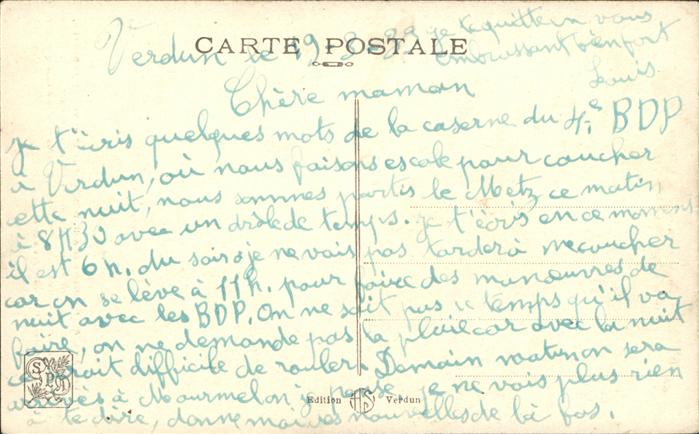 CARTE POSTALE
Verdun le 19-8-39
je te quitte en vous
embrassant bien fort
Louis.
Chère maman
je t'écris quelques mots de la caserne du 4e BDP
à Verdun, où nous faisons escale pour coucher
cette nuit, nous sommes partis de Metz ce matin,
à 8H30 avec un drôle de temps. je t'écris en ce moment
il est 6h. du soir je ne vais pas tarder à me coucher
car on se lève à 11h. pour faire des manœuvres de
nuit avec les BDP. On ne sait pas le temps qu'il va
faire, on ne demande pas la pluie car avec la nuit
ce serait difficile de rouler. Demain matin on sera
arrivés à Mourmelon je ne vais plus rien
à te dire, donne moi des nouvelles de là bas.
SPD
Edition Verdun